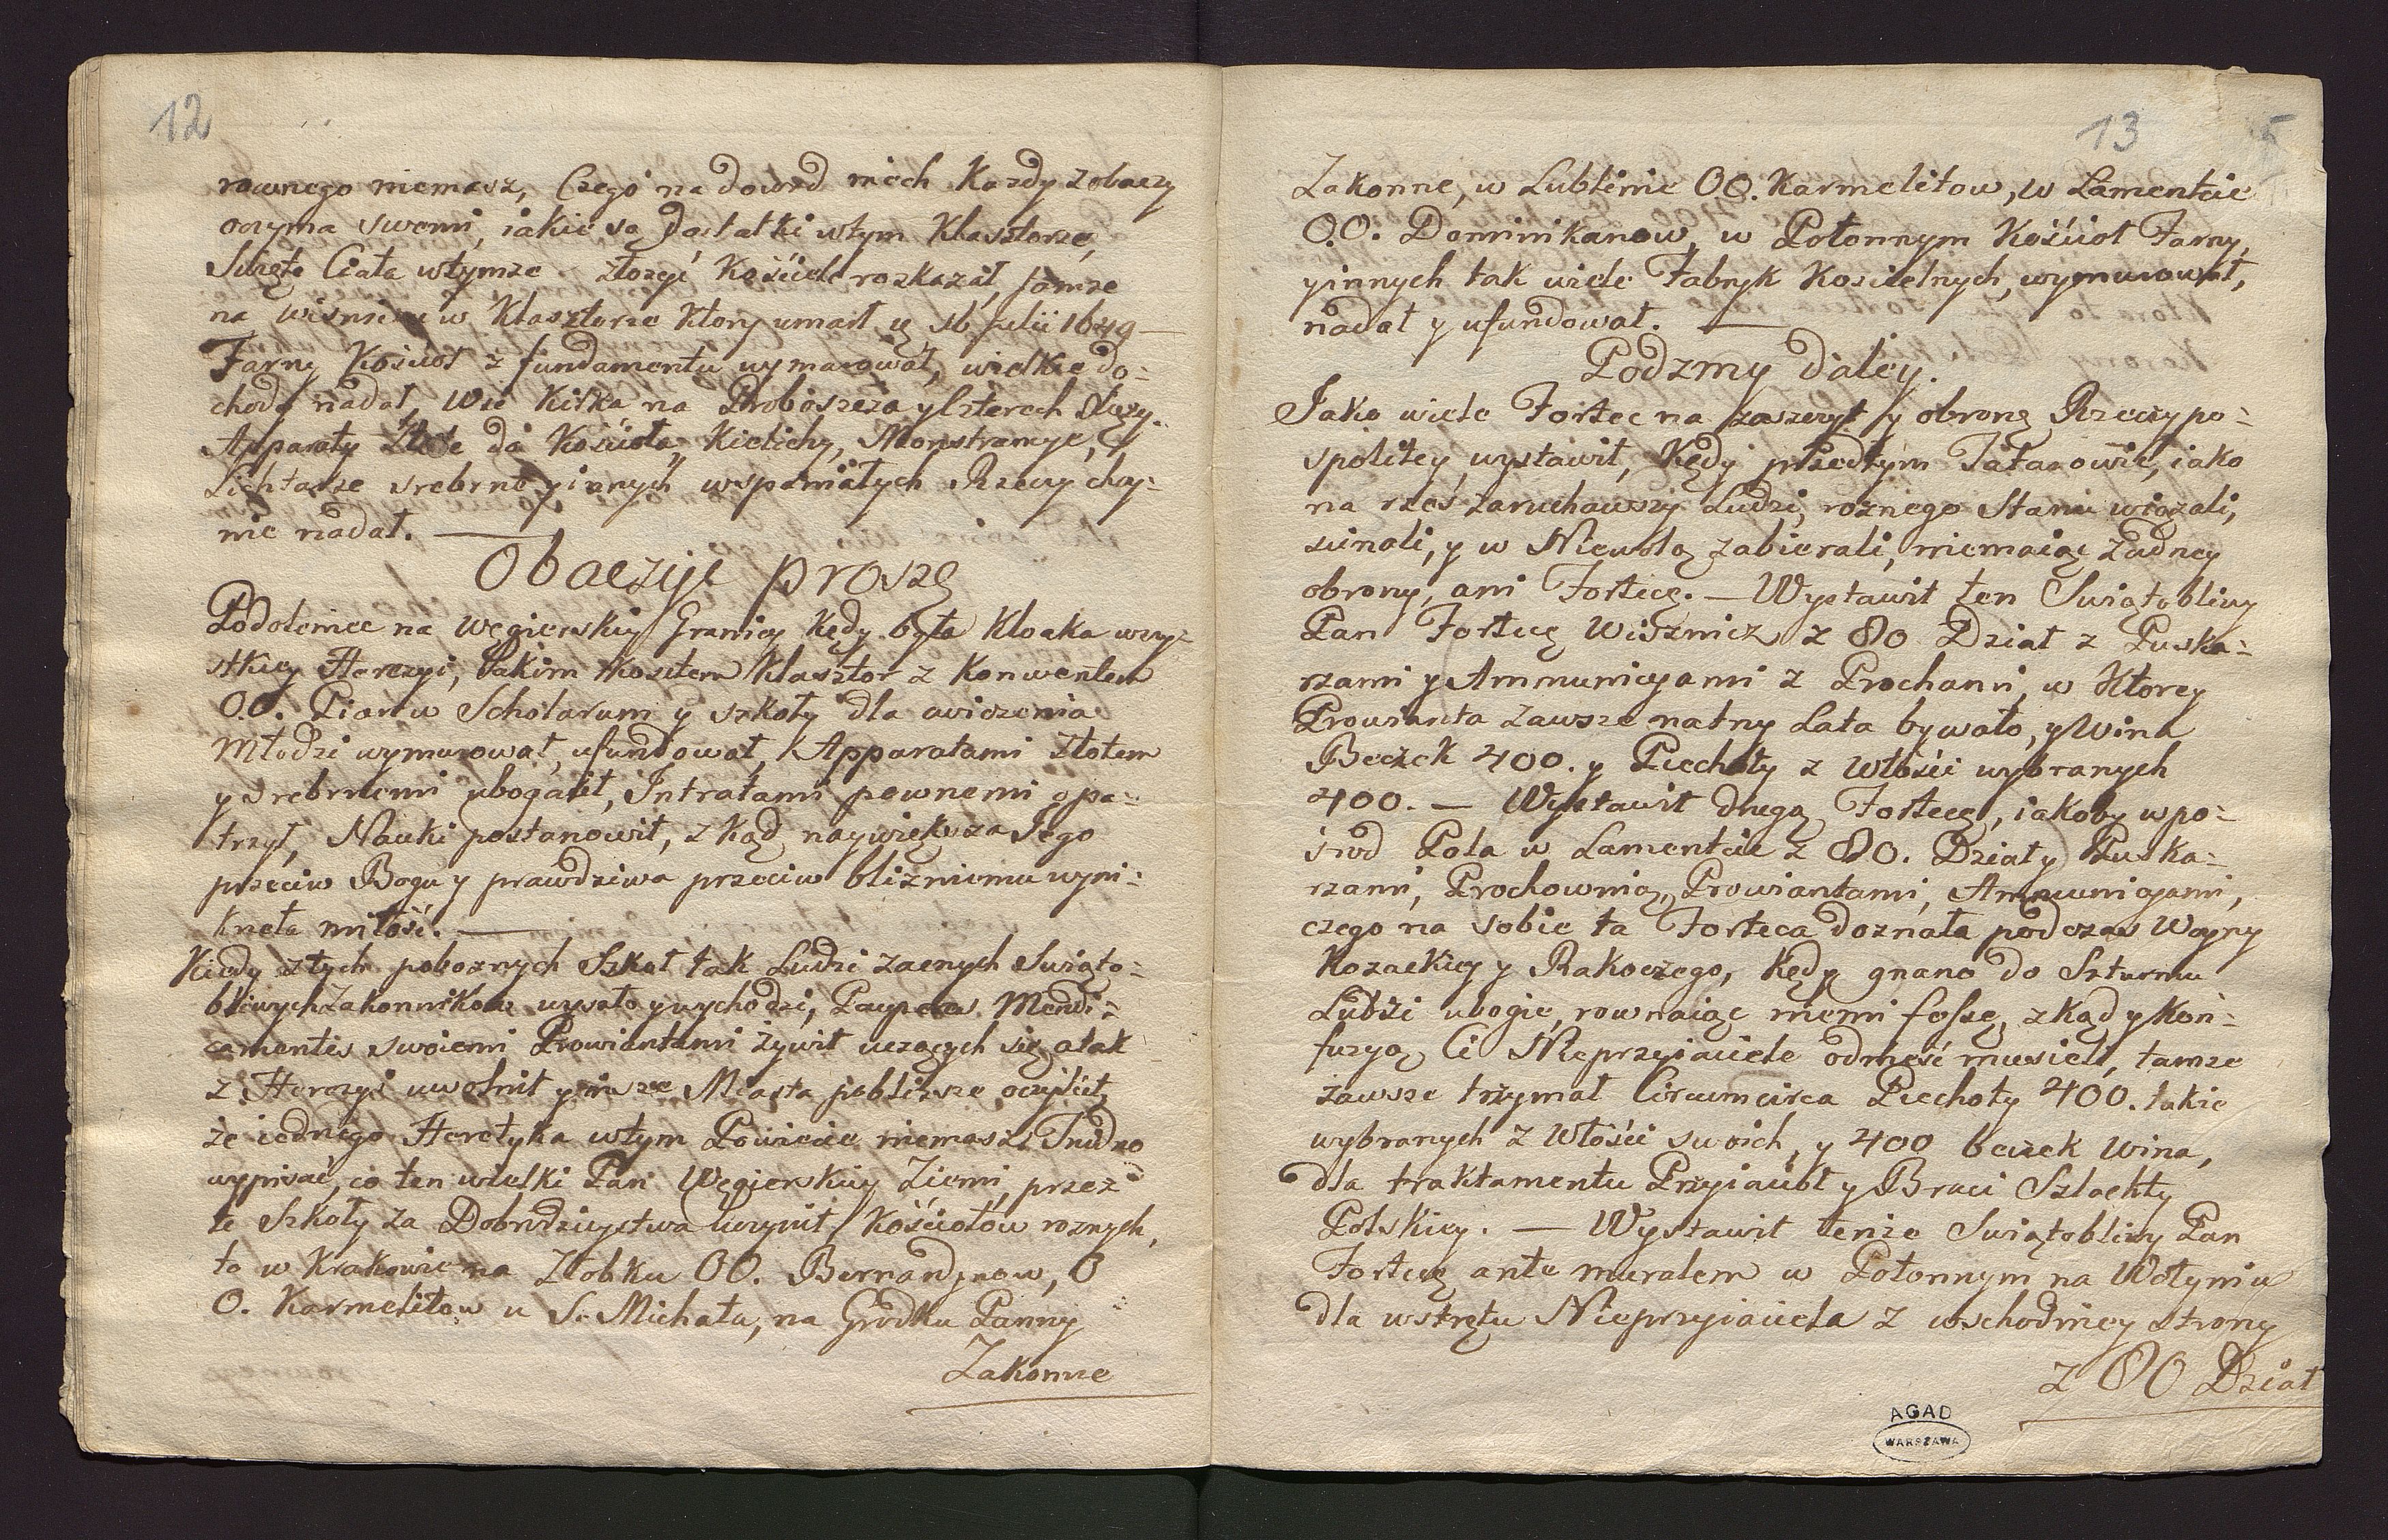 12
rownego niemasz, Czego na dowod niech Kazdy zobaczy
oczyma swemi, iakie są Dostatki wtym Klasztorze,
Swięte Ciała wtymże złozyć Kościele rozkazał, tamze
na wisniczu w Klasztorze Ktory umarł 16 Julii 1649 —
Farny Kościoł z fundamentu wymurował, wielkie do-
chody nadał, Wsie Kilka na Proboszcza y Czterech Xięzy.
Apparaty Złote do Kościoła, Kielichy, Monstrancye, y
Lichtarze srebrne y innych wspaniałych Rzeczy choy-
nie nadał. —
Obaczyć proszę
Podoleniec na Węgierskiy Granicy Kędy była Kloaka wszy-
stkiey Herezyi, Takim Kosztem Klasztor z Konwentem
O.O. Piarum Scholarum y szkoły dla cwiczenia
Młodzi wymurował, ufundował, Apparatami Złotem
y srebrnemi ubogacił, Intratami pewnemi opa-
trzył, Nauki postanowił, z kąd naywiększa Jego
przeciw Bogu y prawdziwa przeciw blizniemu wyni-
kneła miłość. —
Kiedy z tych poboznych Szkoł tak Ludzi zacnych Swiąto-
bliwych Zakonnikow wyszło y wychodzi, Pauperes Mendi-
camentes swoiemi Prowiantami zywił uczących się, a tak
z Herezyi uwolnił y insze Miasta pobliższe oczyścił,
że iednego Heretyka wtym Powiecie niemasz. Trudno
wypisać, co ten wielki Pan Węgierskiey Ziemi, przez
te Szkoły za Dobrodzieystwa uczynił, Kościołow roznych,
to w Krakowie na Złobku OO. Bernardynow, O
O. Karmelitow u S. Michała, na Grodku Panny
Zakonne
13
5
Zakonne, w Lublinie OO. Karmelitow, w Łamencie
O.O. Dominikanow, w Połonnym Kościoł Farny,
y innych tak wiele Fabryk Koscielnych, wymurował,
nadał y ufundował. —
Podzmy daley.
Jako wiele Fortec na zaszczyt y obronę Rzeczypo-
spolitey wystawił, Kędy przedtym Tatarowie, iako
na rzeź zaruchawszy Ludzi, roznego Stanu wiązali,
scinali, y w Niewolą zabierali, niemaiąc żadney
obrony, ani Fortecę. — Wystawił ten Swiątobliwy
Pan Fortecę Wisznicz z 80 Dział z Puszka-
rzami y Ammunicyami z Prochami, w Ktorey
Prowianta zawsze natrzy Lata bywało, y Wina
Beczek 400. y Piechoty z Włości wybranych
400. — Wystawił drugą Fortecę, iakoby wpo-
środ Pola w Łamencie z 80. Działy Puszka-
rzami, Prochownią, Prowiantami, Ammunicyami,
czego na sobie ta Forteca doznała podczas Woyny
Kozackiey y Rakoczego, Kędy gnano do Szturmu
Ludzi ubogie, rownaiąc niemi fossę, z kąd y Kon-
fuzyą Ci Nieprzyiaciele odnieść musieli, tamze
zawsze trzymał Circumcirca Piechoty 400. takze
wybranych z Włości swoich, y 400 beczek Wina,
dla traktamentu Przyiacioł y Braci Szlachty
Polskiey. — Wystawił tenże Swiątobliwy Pan
Fortecę ante muralem w Połonnym na Wołyniu
dla wstrętu Nieprzyiaciela z wschodniey strony
z 80 Dział
AGAD
WARSZAWA